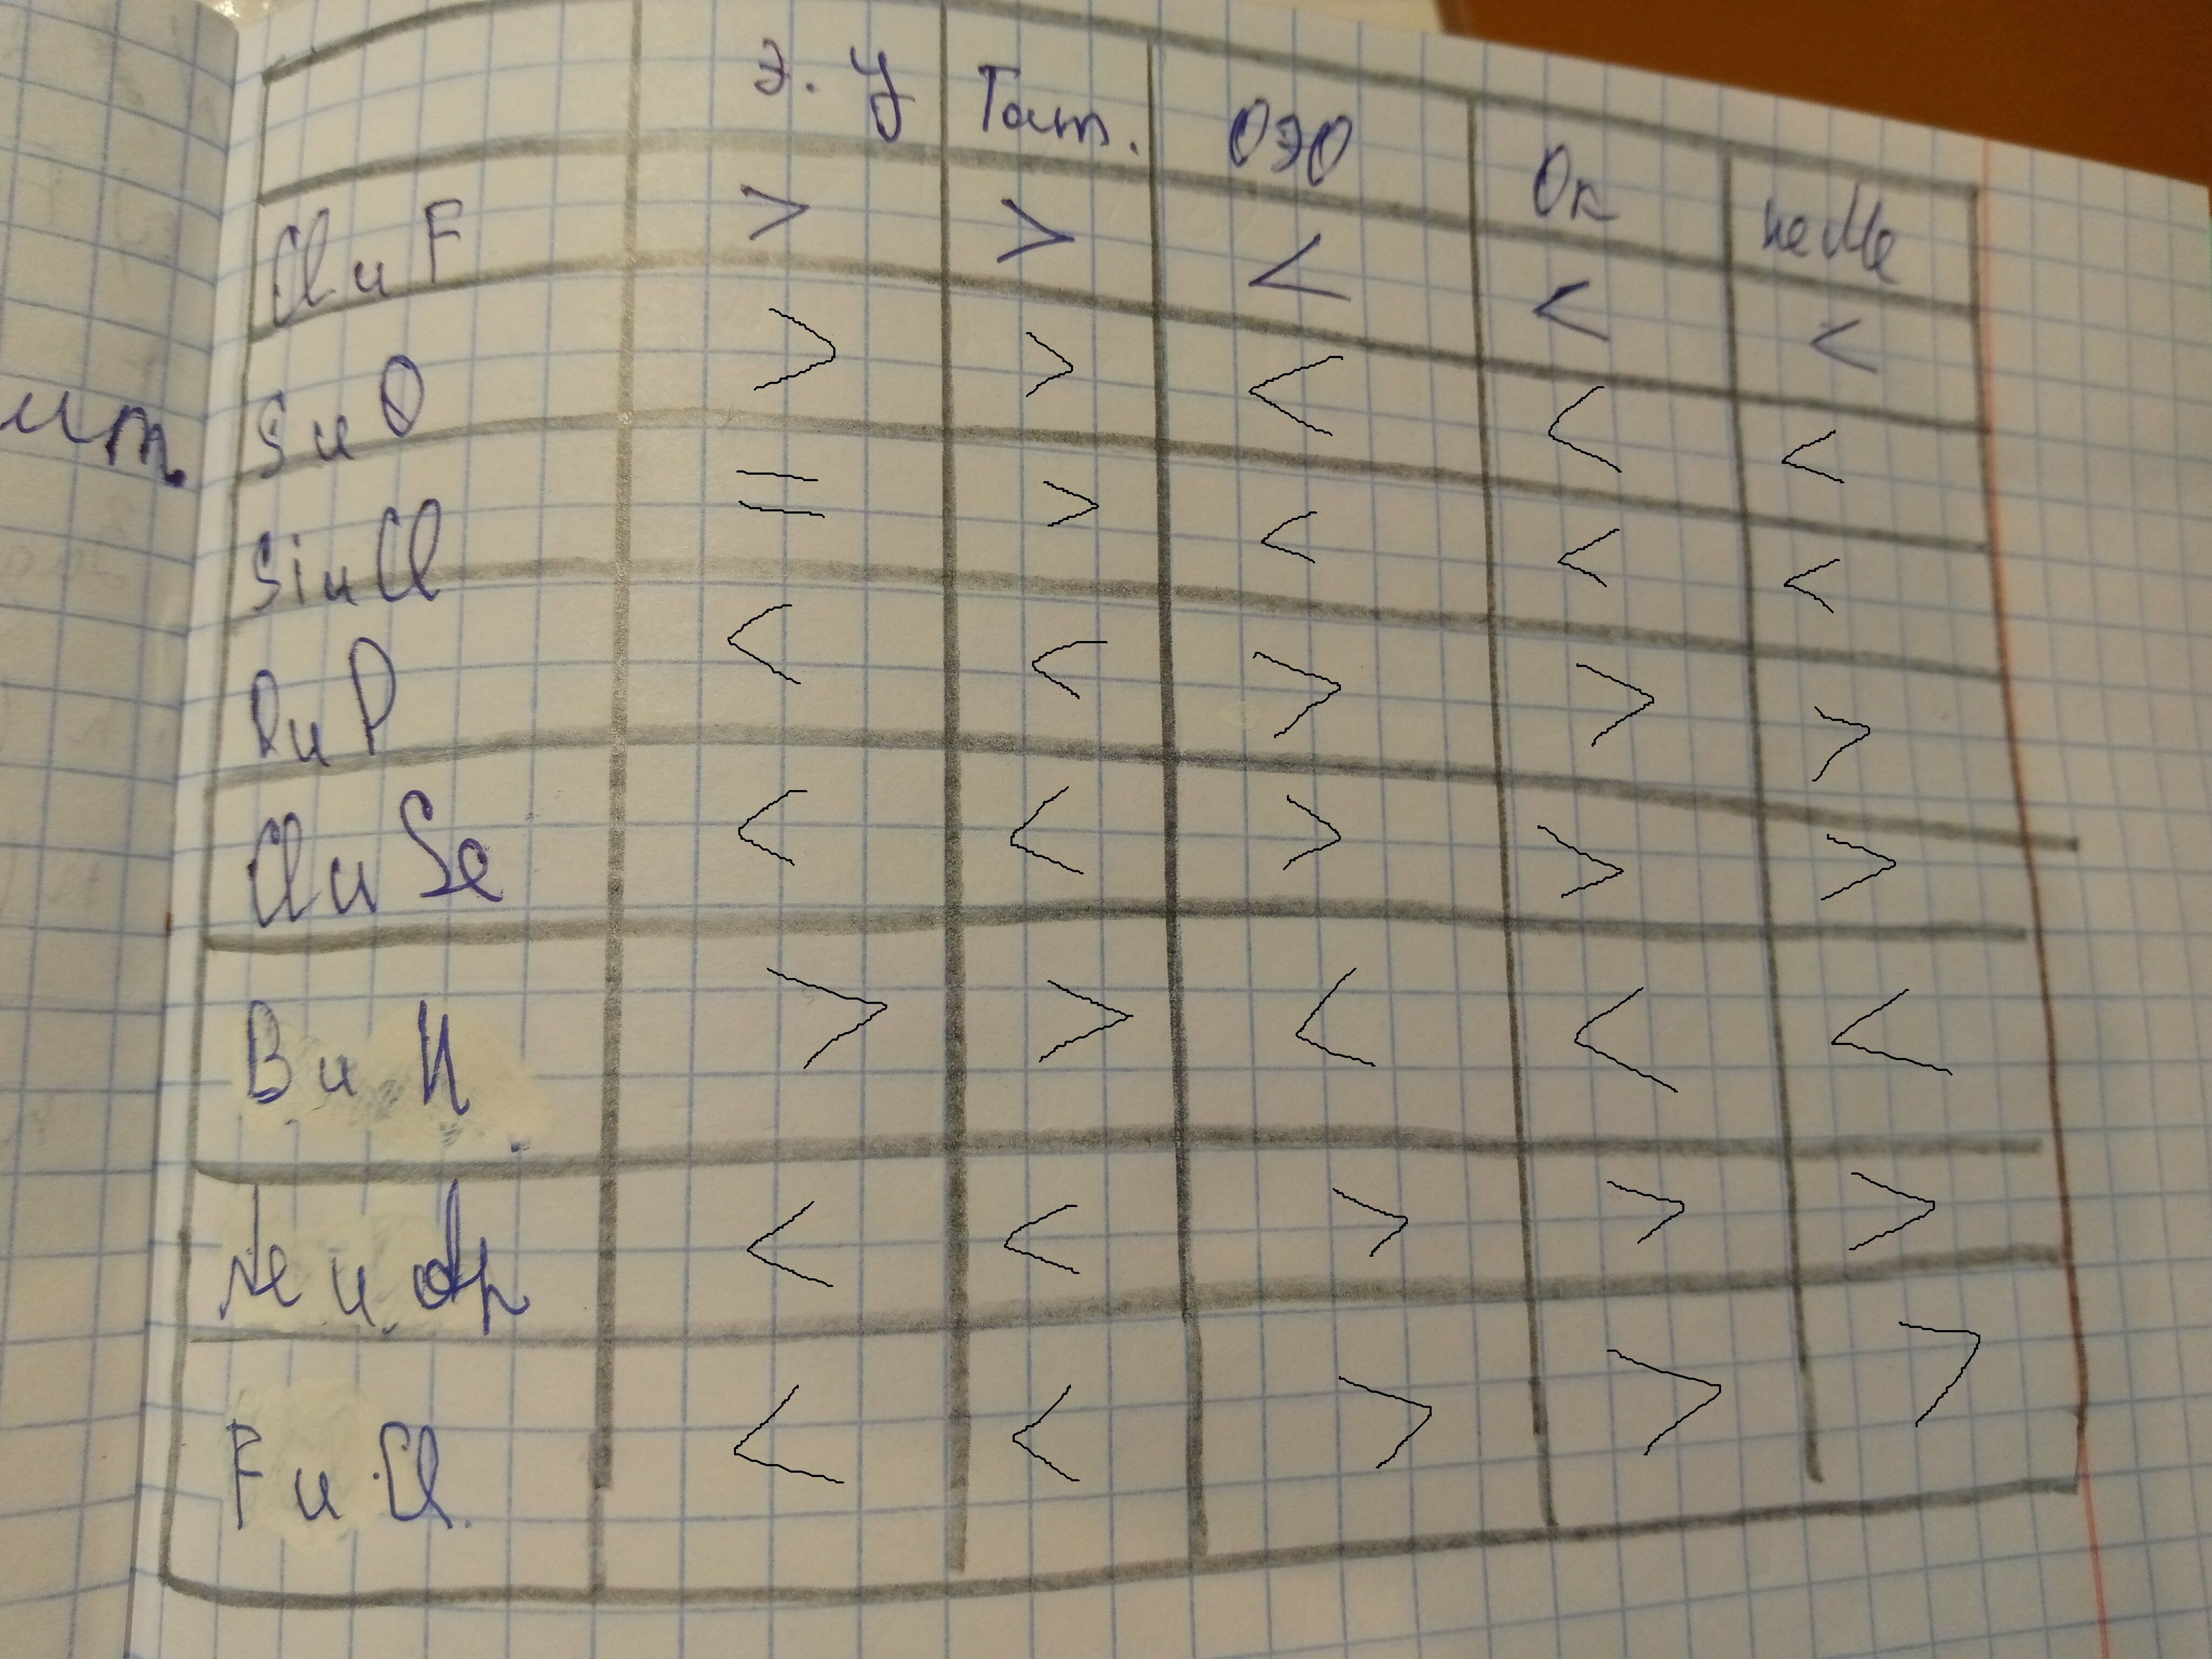 э. у Rат. ОЭО Ок неМе
Cl и F > > < < <
S и O > > < < <
Si и Cl = > < < <
O и P < < > > >
Cl и Se < < > > >
B и N > > < < <
Ne и Ar < < > > >
F и Cl. < < > > >
ит.